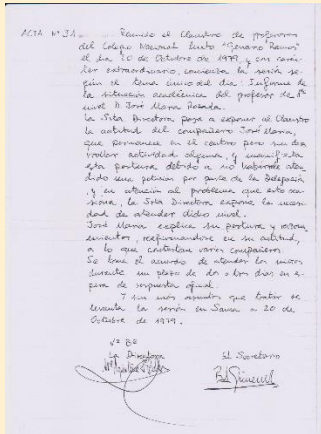 ACTA Nº 31.- Reunido el Claustro de profesores
del Colegio Nacional Mixto "Genaro Ramos"
el día 20 de Octubre de 1979, y con carác-
ter extraordinario, comienza la sesión se-
gún el tema único del día: Informe de
la situación académica del profesor de 8º
nivel D. José María Posada.
La Srta Directora pasa a exponer al Claustro
la actitud del compañero José María,
que permanece en el centro pero sin desa-
rrollar actividad alguna, y manifiesta
esta postura debido a no habérsele aten-
dido una petición por parte de la Delegación
, y en atención al problema que esto oca-
siona, la Srta Directora expone la necesi-
dad de atender dicho nivel.
José María explica su postura y razona-
mientos, reafirmándose en su actitud,
a lo que contestan varios compañeros.
Se toma el acuerdo de atender los
durante un plazo de dos o tres días en es-
pera de respuesta oficial.
Y sin más asuntos que tratar se
levanta la sesión en a 20 de
Octubre de 1979.
Vº Bº
La Directora
El Secretario